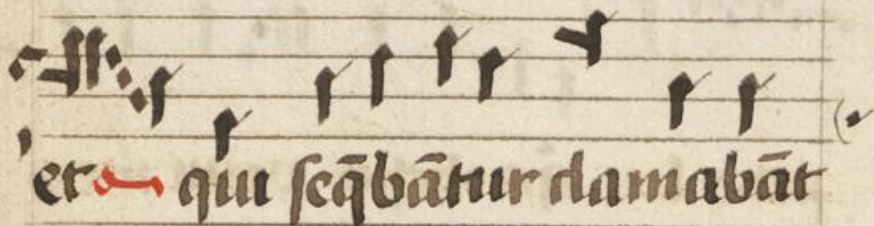 et qui seq̄bātur clamabāt